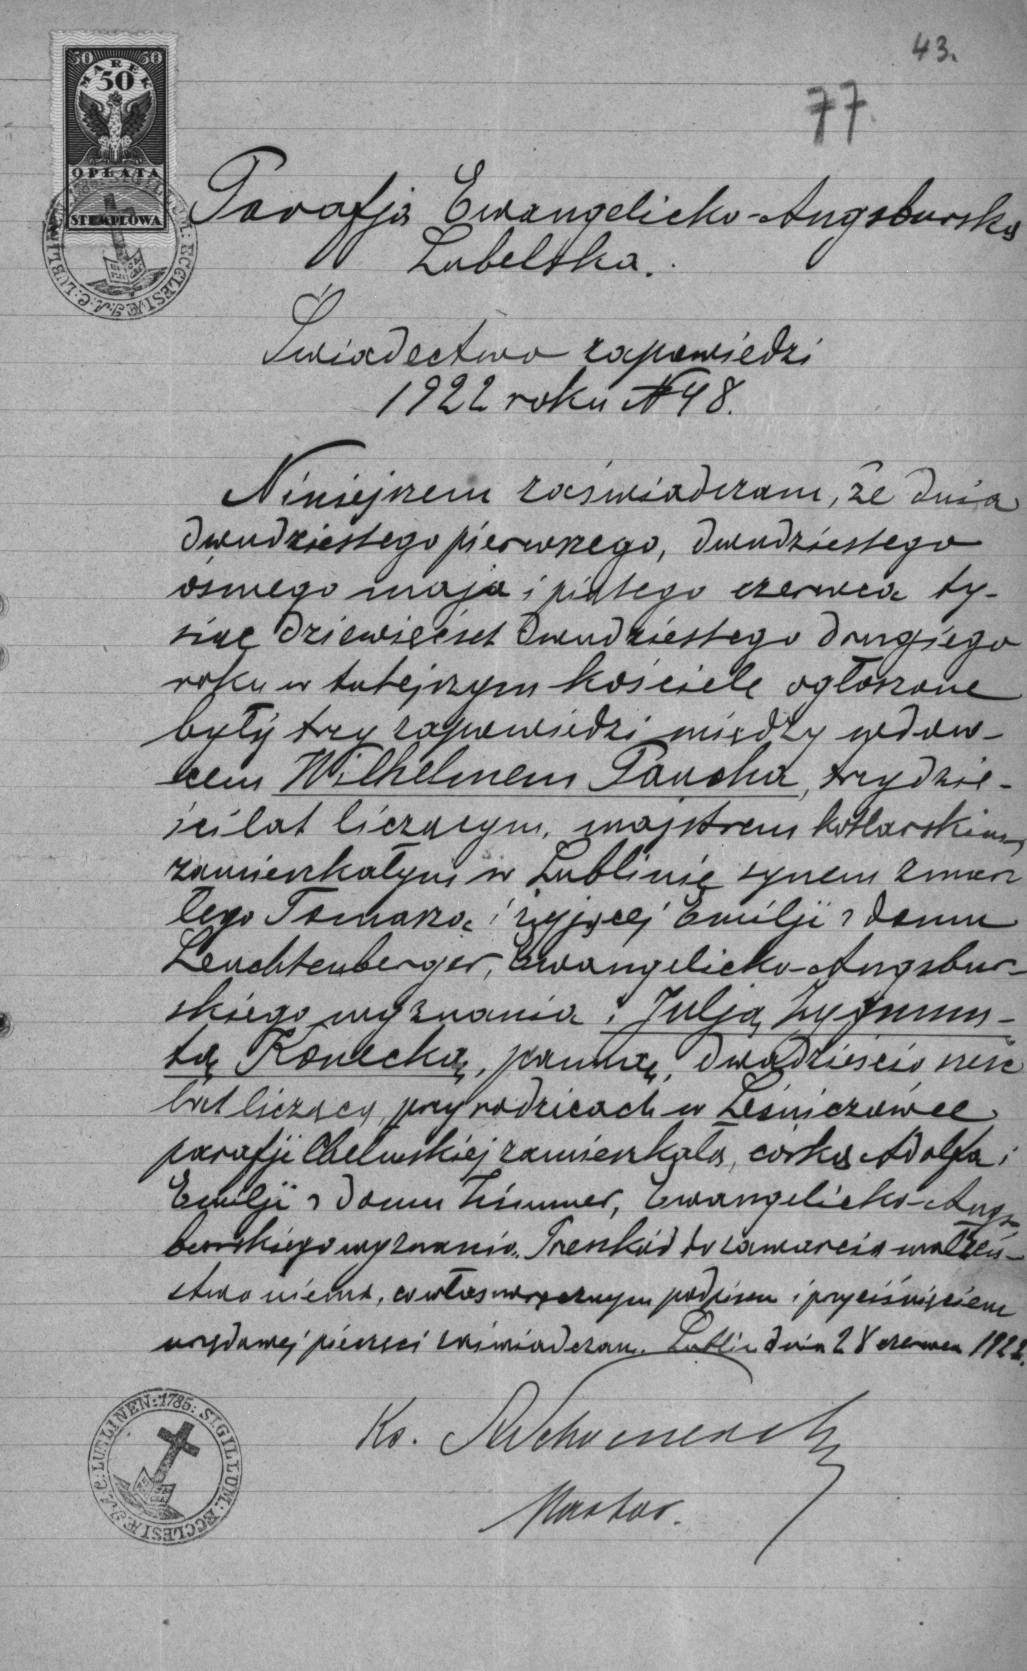 43.
77.
50 50
MAREK
50
OPŁATA
STEMPLOWA
Parafja Ewangelicko-Augsburska
Lubelska.
Świadectwo zapowiedzi
1922 roku № 48.
Niniejszem zaświadczam, że dnia
dwudziestego pierwszego, dwudziestego
ósmego maja i piątego czerwca ty-
siąc dziewięćset dwudziestego drugiego
roku w tutejszym kościele ogłoszone
były trzy zapowiedzi między wdow-
cem Wilhelmem Paucha, trzydzie-
ści lat liczącym, majstrem kotlarskim
zamieszkałym w Lublinie synem zmar
łego Tomasza i żyjącej Emilji z domu
Leuchtenberger, Ewangelicko-Augsbur-
skiego wyznania i Julją Zygmun-
tą Konecką, panną, dwadzieścia sześć
lat liczącą przy rodzicach w Leśniczówce
parafji Chełmskiej zamieszkałą, córką Adolfa i
Emilji z domu Zimmer, Ewangelicko-Augs
burskiego wyznania. Przeszkód do zawarcia małżeń-
stwa niema, co własnoręcznym podpisem i przyciśnięciem
urzędowej pieczęci zaświadczam. Lublin dnia 28 czerwca 1922.
Ks.
Pastor.
LUBLINEN: 1785: SIGILLUM: ECCLESIÆ